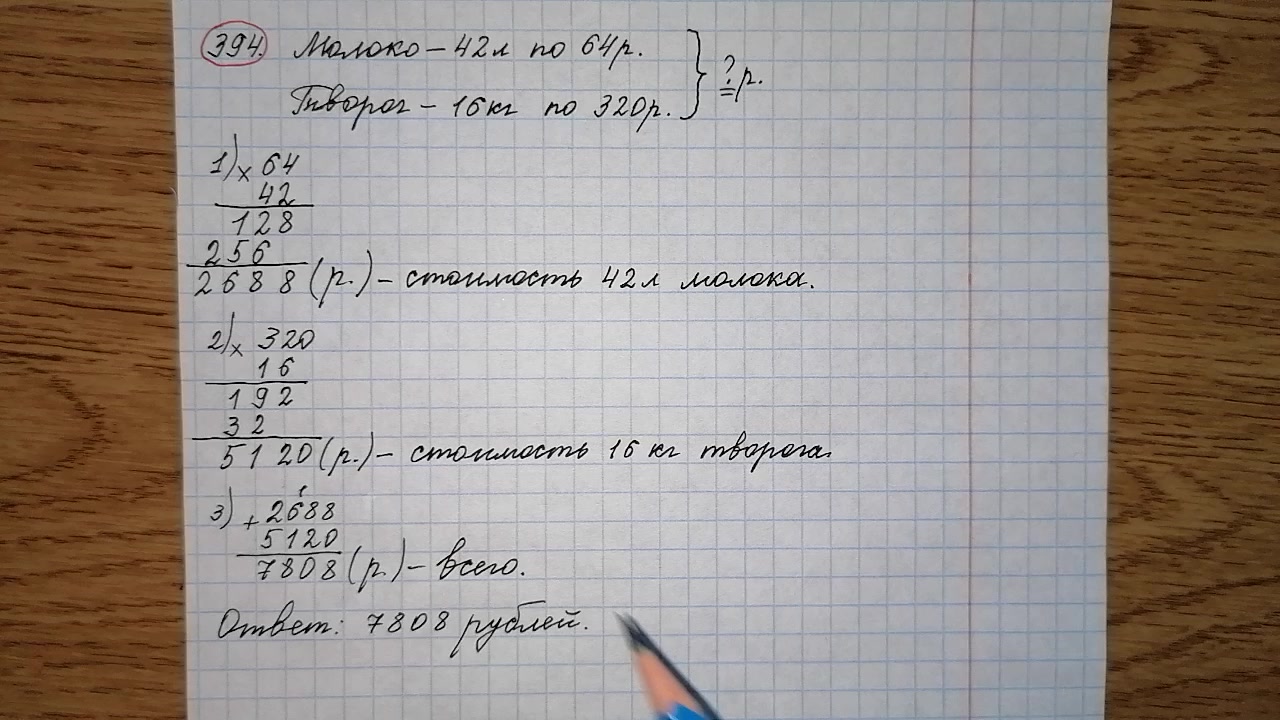 394. Молоко – 42л по 64р.
Творог – 16кг по 320р.
} ? р.
1) × 64
42
128
256
2688 (р.) – стоимость 42л молока.
2) × 320
16
192
32
5120 (р.) – стоимость 16 кг творога.
1
3) + 2688
5120
7808 (р.) – всего.
Ответ: 7808 рублей.